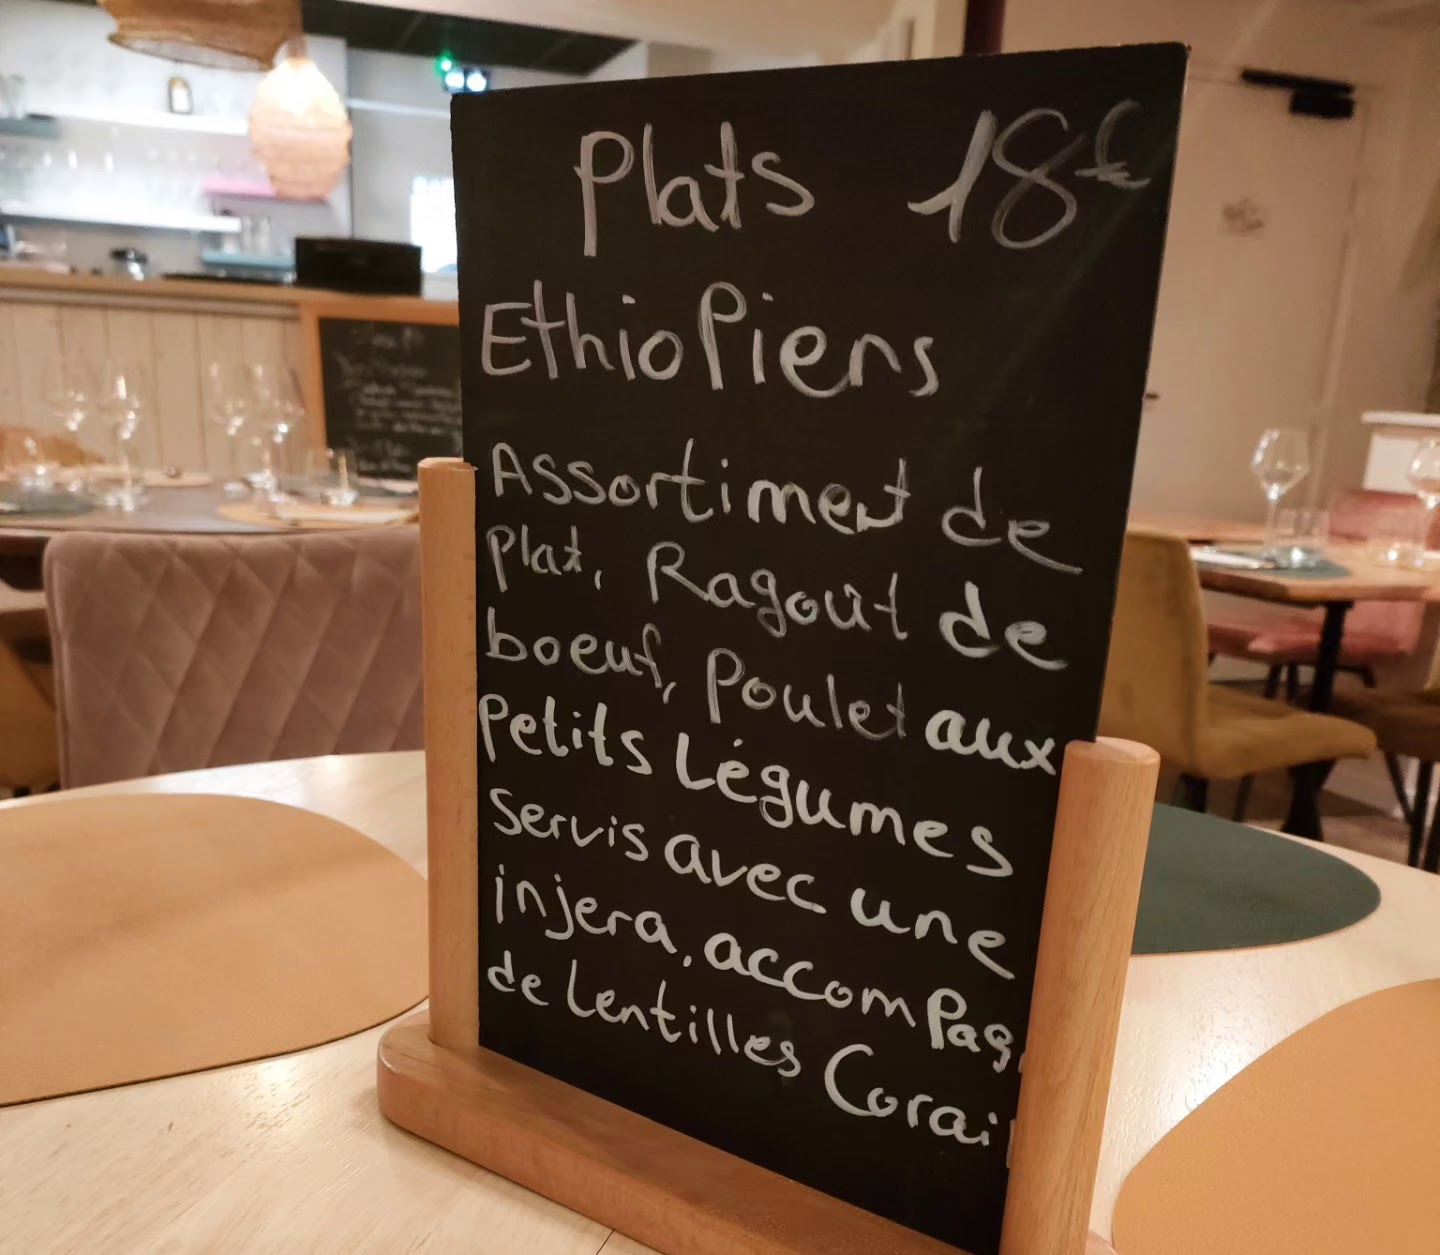 Plats 18€
Ethiopiens
Assortiment de
plat, Ragoût de
boeuf, Poulet aux
petits Légumes
servis avec une
injera, accompag
de lentilles Corai